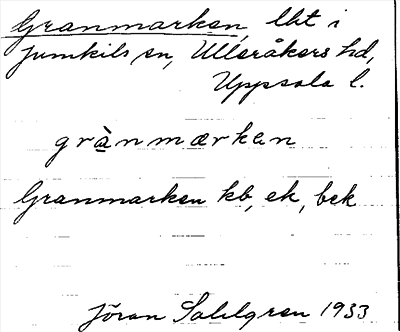 Granmarken, lht i
Jumkils sn, Ulleråkers hd,
Uppsala l.
grànmærken
Granmarken kb, ek, bek
Jöran Sahlgren 1933